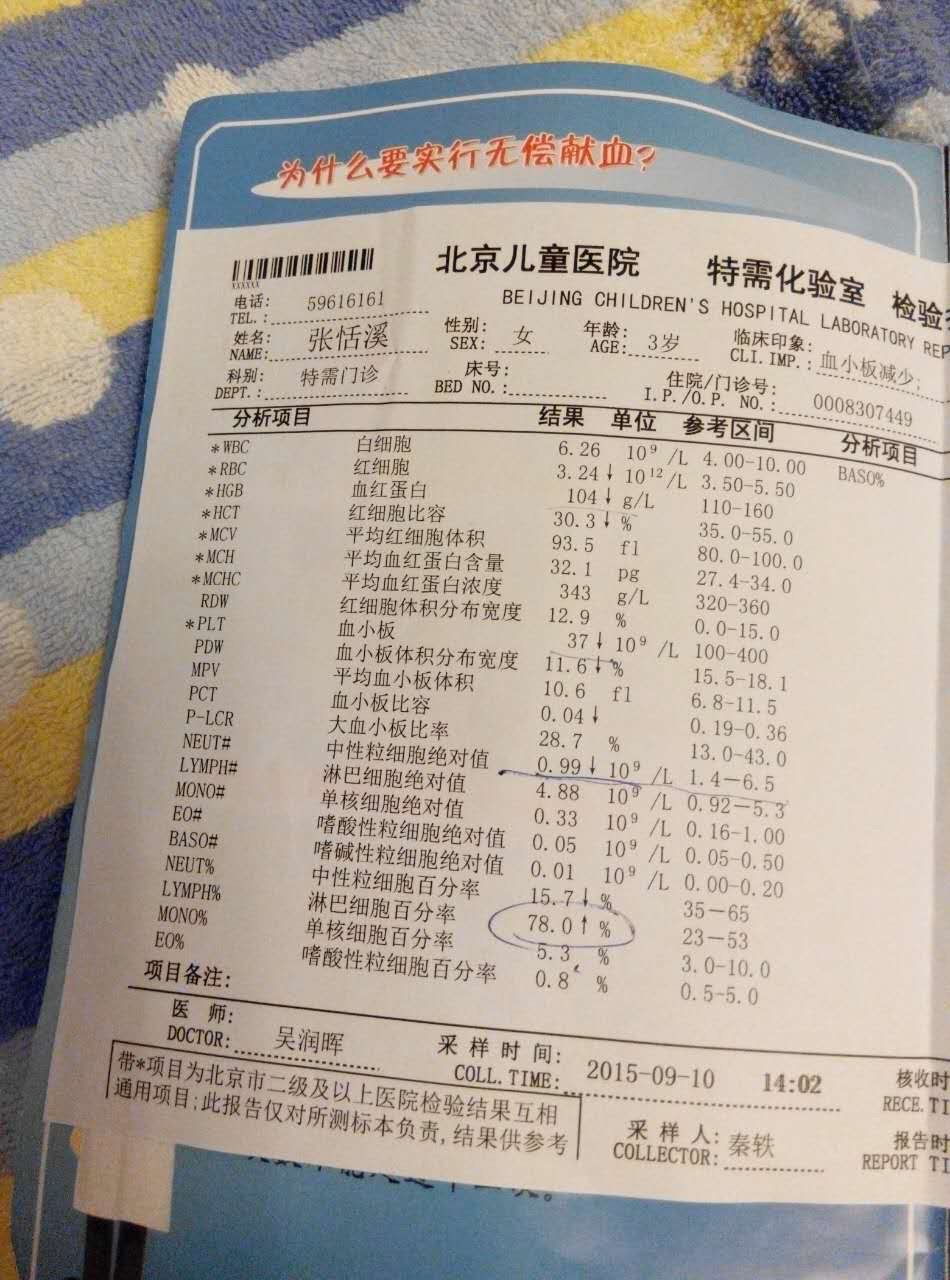 为什么要实行无偿献血?
XXXXXX
北京儿童医院 特需化验室 检验
BEIJING CHILDREN'S HOSPITAL LABORATORY REP
电话: 59616161
TEL.:
姓名: 张恬溪 性别: 女 年龄: 3岁 临床印象: 血小板减少;
NAME: SEX: AGE: CLI.IMP.:
科别: 特需门诊 床号: 住院/门诊号: 0008307449
DEPT.: BED NO.: I.P./O.P. NO.:
分析项目 结果 单位 参考区间 分析项目
*WBC 白细胞 6.26 10⁹ /L 4.00-10.00 BASO%
*RBC 红细胞 3.24↓ 10¹² /L 3.50-5.50
*HGB 血红蛋白 104↓ g/L 110-160
*HCT 红细胞比容 30.3↓ % 35.0-55.0
*MCV 平均红细胞体积 93.5 fl 80.0-100.0
*MCH 平均血红蛋白含量 32.1 pg 27.4-34.0
*MCHC 平均血红蛋白浓度 343 g/L 320-360
RDW 红细胞体积分布宽度 12.9 % 0.0-15.0
*PLT 血小板 37↓ 10⁹ /L 100-400
PDW 血小板体积分布宽度 11.6↓ % 15.5-18.1
MPV 平均血小板体积 10.6 fl 6.8-11.5
PCT 血小板比容 0.04↓ 0.19-0.36
P-LCR 大血小板比率 28.7 % 13.0-43.0
NEUT# 中性粒细胞绝对值 0.99↓ 10⁹ /L 1.4-6.5
LYMPH# 淋巴细胞绝对值 4.88 10⁹ /L 0.92-5.3
MONO# 单核细胞绝对值 0.33 10⁹ /L 0.16-1.00
EO# 嗜酸性粒细胞绝对值 0.05 10⁹ /L 0.05-0.50
BASO# 嗜碱性粒细胞绝对值 0.01 10⁹ /L 0.00-0.20
NEUT% 中性粒细胞百分率 15.7↓ % 35-65
LYMPH% 淋巴细胞百分率 78.0↑ % 23-53
MONO% 单核细胞百分率 5.3 % 3.0-10.0
EO% 嗜酸性粒细胞百分率 0.8 % 0.5-5.0
项目备注:
医 师: 吴润晖 采样时间: 2015-09-10 14:02 核收时
DOCTOR: COLL.TIME: RECE.TI
带*项目为北京市二级及以上医院检验结果互相
通用项目;此报告仅对所测标本负责,结果供参考
采样人: 秦轶 报告时
COLLECTOR: REPORT TI